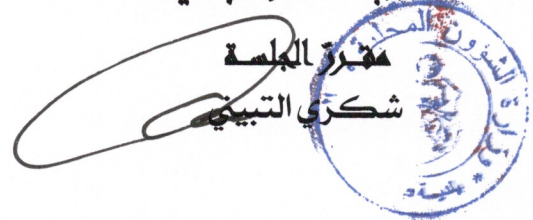 مقررّ الجلسة
شكري التبيني
وزارة الشؤون المحلية